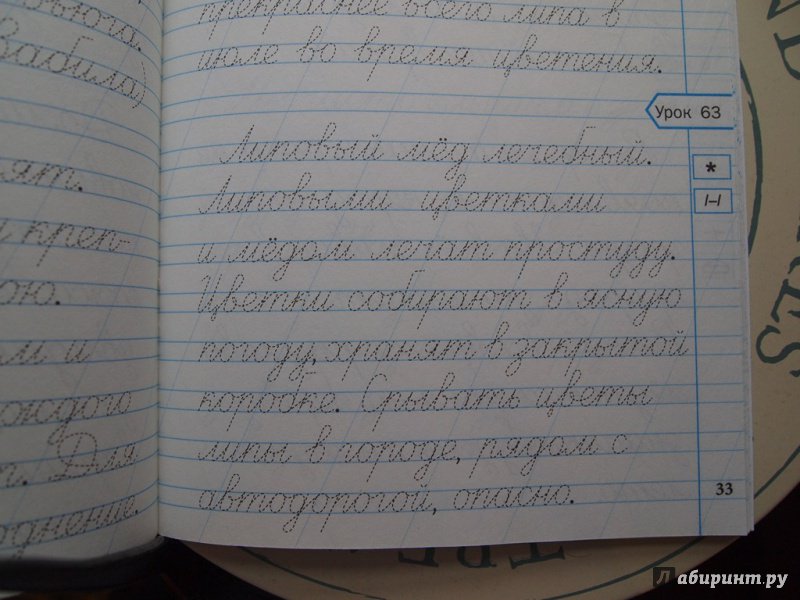 вьюга.
Забила)
ят.
и креп-
ою.
м и
ждого
т. Для
однение.
прекраснее всего липа в
июле во время цветения.
Урок 63
Липовый мёд лечебный.
Липовыми цветками
и мёдом лечат простуду.
Цветки собирают в ясную
погоду, хранят в закрытой
коробке. Срывать цветы
липы в городе, рядом с
автодорогой, опасно.
*
I–I
33
лабиринт.ру